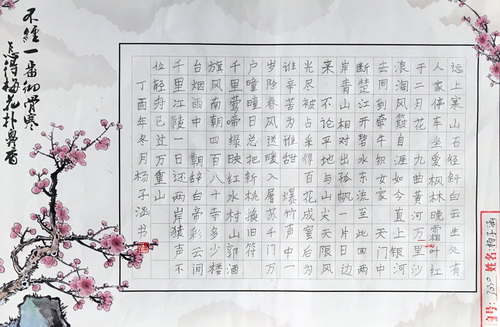 远上寒山石径斜白云生处有
人家停车坐爱枫林晚霜叶红
于二月花 九曲黄河万里沙
浪淘风簸自涯如今直上银河
去同到牵牛织女家 天门中
断楚江开碧水东流至此回两
岸青山相对出孤帆一片日边
来 不论平地与山尖无限风
光尽被占采得百花成蜜后为
谁辛苦为谁甜 爆竹声中一
岁除春风送暖入屠苏千门万
户曈曈日总把新桃换旧符
千里莺啼绿映红水村山郭酒
旗风南朝四百八十寺多少楼
台烟雨中 朝辞白帝彩云间
千里江陵一日还两岸猿声不
住轻舟已过万重山
丁酉年冬月杨子涵书
不經一番彻骨寒
怎得梅花扑鼻香
姓名